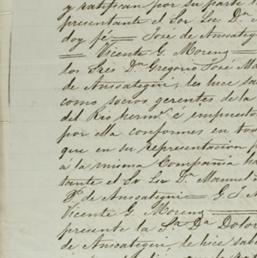 y ratifican por su parte l
presentante el Sor Lic Dn
doy fé = José de Ansoategui
Vicente G. Moreno
los Sres Dn Gregorio José Ma
de Ansoategui, les hice sa
como socios gerentes de la
del Rio é impuesto
por ella conformes en to
que en su representacion,
á la misma Compañia ha
sante el Sr Lic Dn Manuel
Pa de Ansoategui = G. J.
Vicente G Moreno
presente la Sa Da Dolor
de Ansoategui, le hice sab